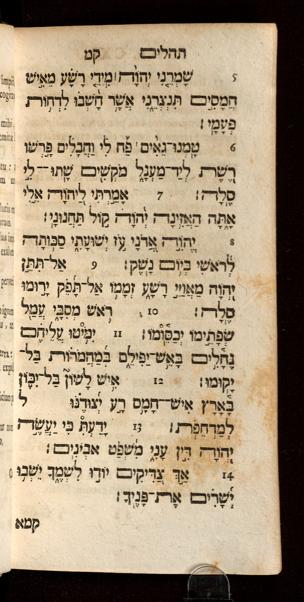 תהלים קמ
5 שׁמרני יהוה מידי רשׁע מאישׁ
חמסים תנצרני אשׁר חשׁבו לדחות
פעמי׃
6 טמנו גאים פח לי וחבלים פרשׂו
רשׁת ליד־מעגל מקשׁים שׁתו־לי
סלה׃ 7 אמרתי ליהוה אלי
אתה האזינה יהוה קול תחנוני׃
8 יהוה אדני עז ישׁועתי סכותה
לראשׁי ביום נשׁק׃ 9 אל־תתן
יהוה מאויי רשׁע זממו אל־תפק ירומו
סלה׃ 10 ראשׁ מסבי עמל
שׂפתימו יכסומו׃ 11 ימיטו עליהם
גחלים באשׁ יפילם במהמרות בל־
יקומו׃ 12 אישׁ לשׁון בל־יכון
בארץ אישׁ־חמס רע יצודנו
למדחפת׃ 13 ידעת כי יעשׂה
יהוה דין עני משׁפט אבינים׃
14 אך צדיקים יודו לשׁמך ישׁבו
ישׁרים את־פניך׃
קמא